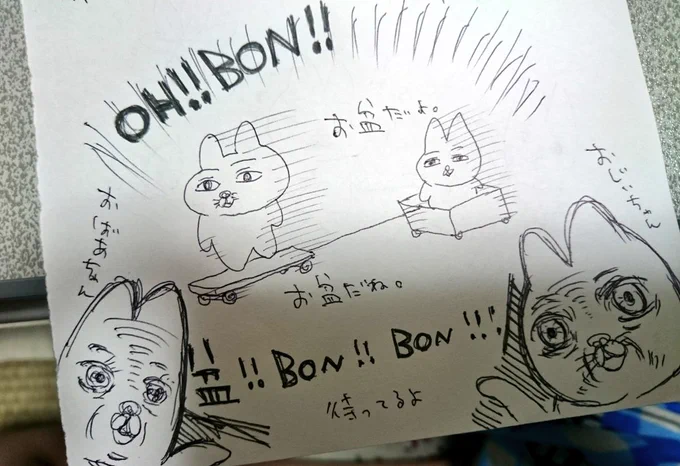 OH!!BON!!
お盆だよ。
おじいちゃん
おばあちゃん
お盆だね。
盆!!BON!!BON!!!
待ってるよ